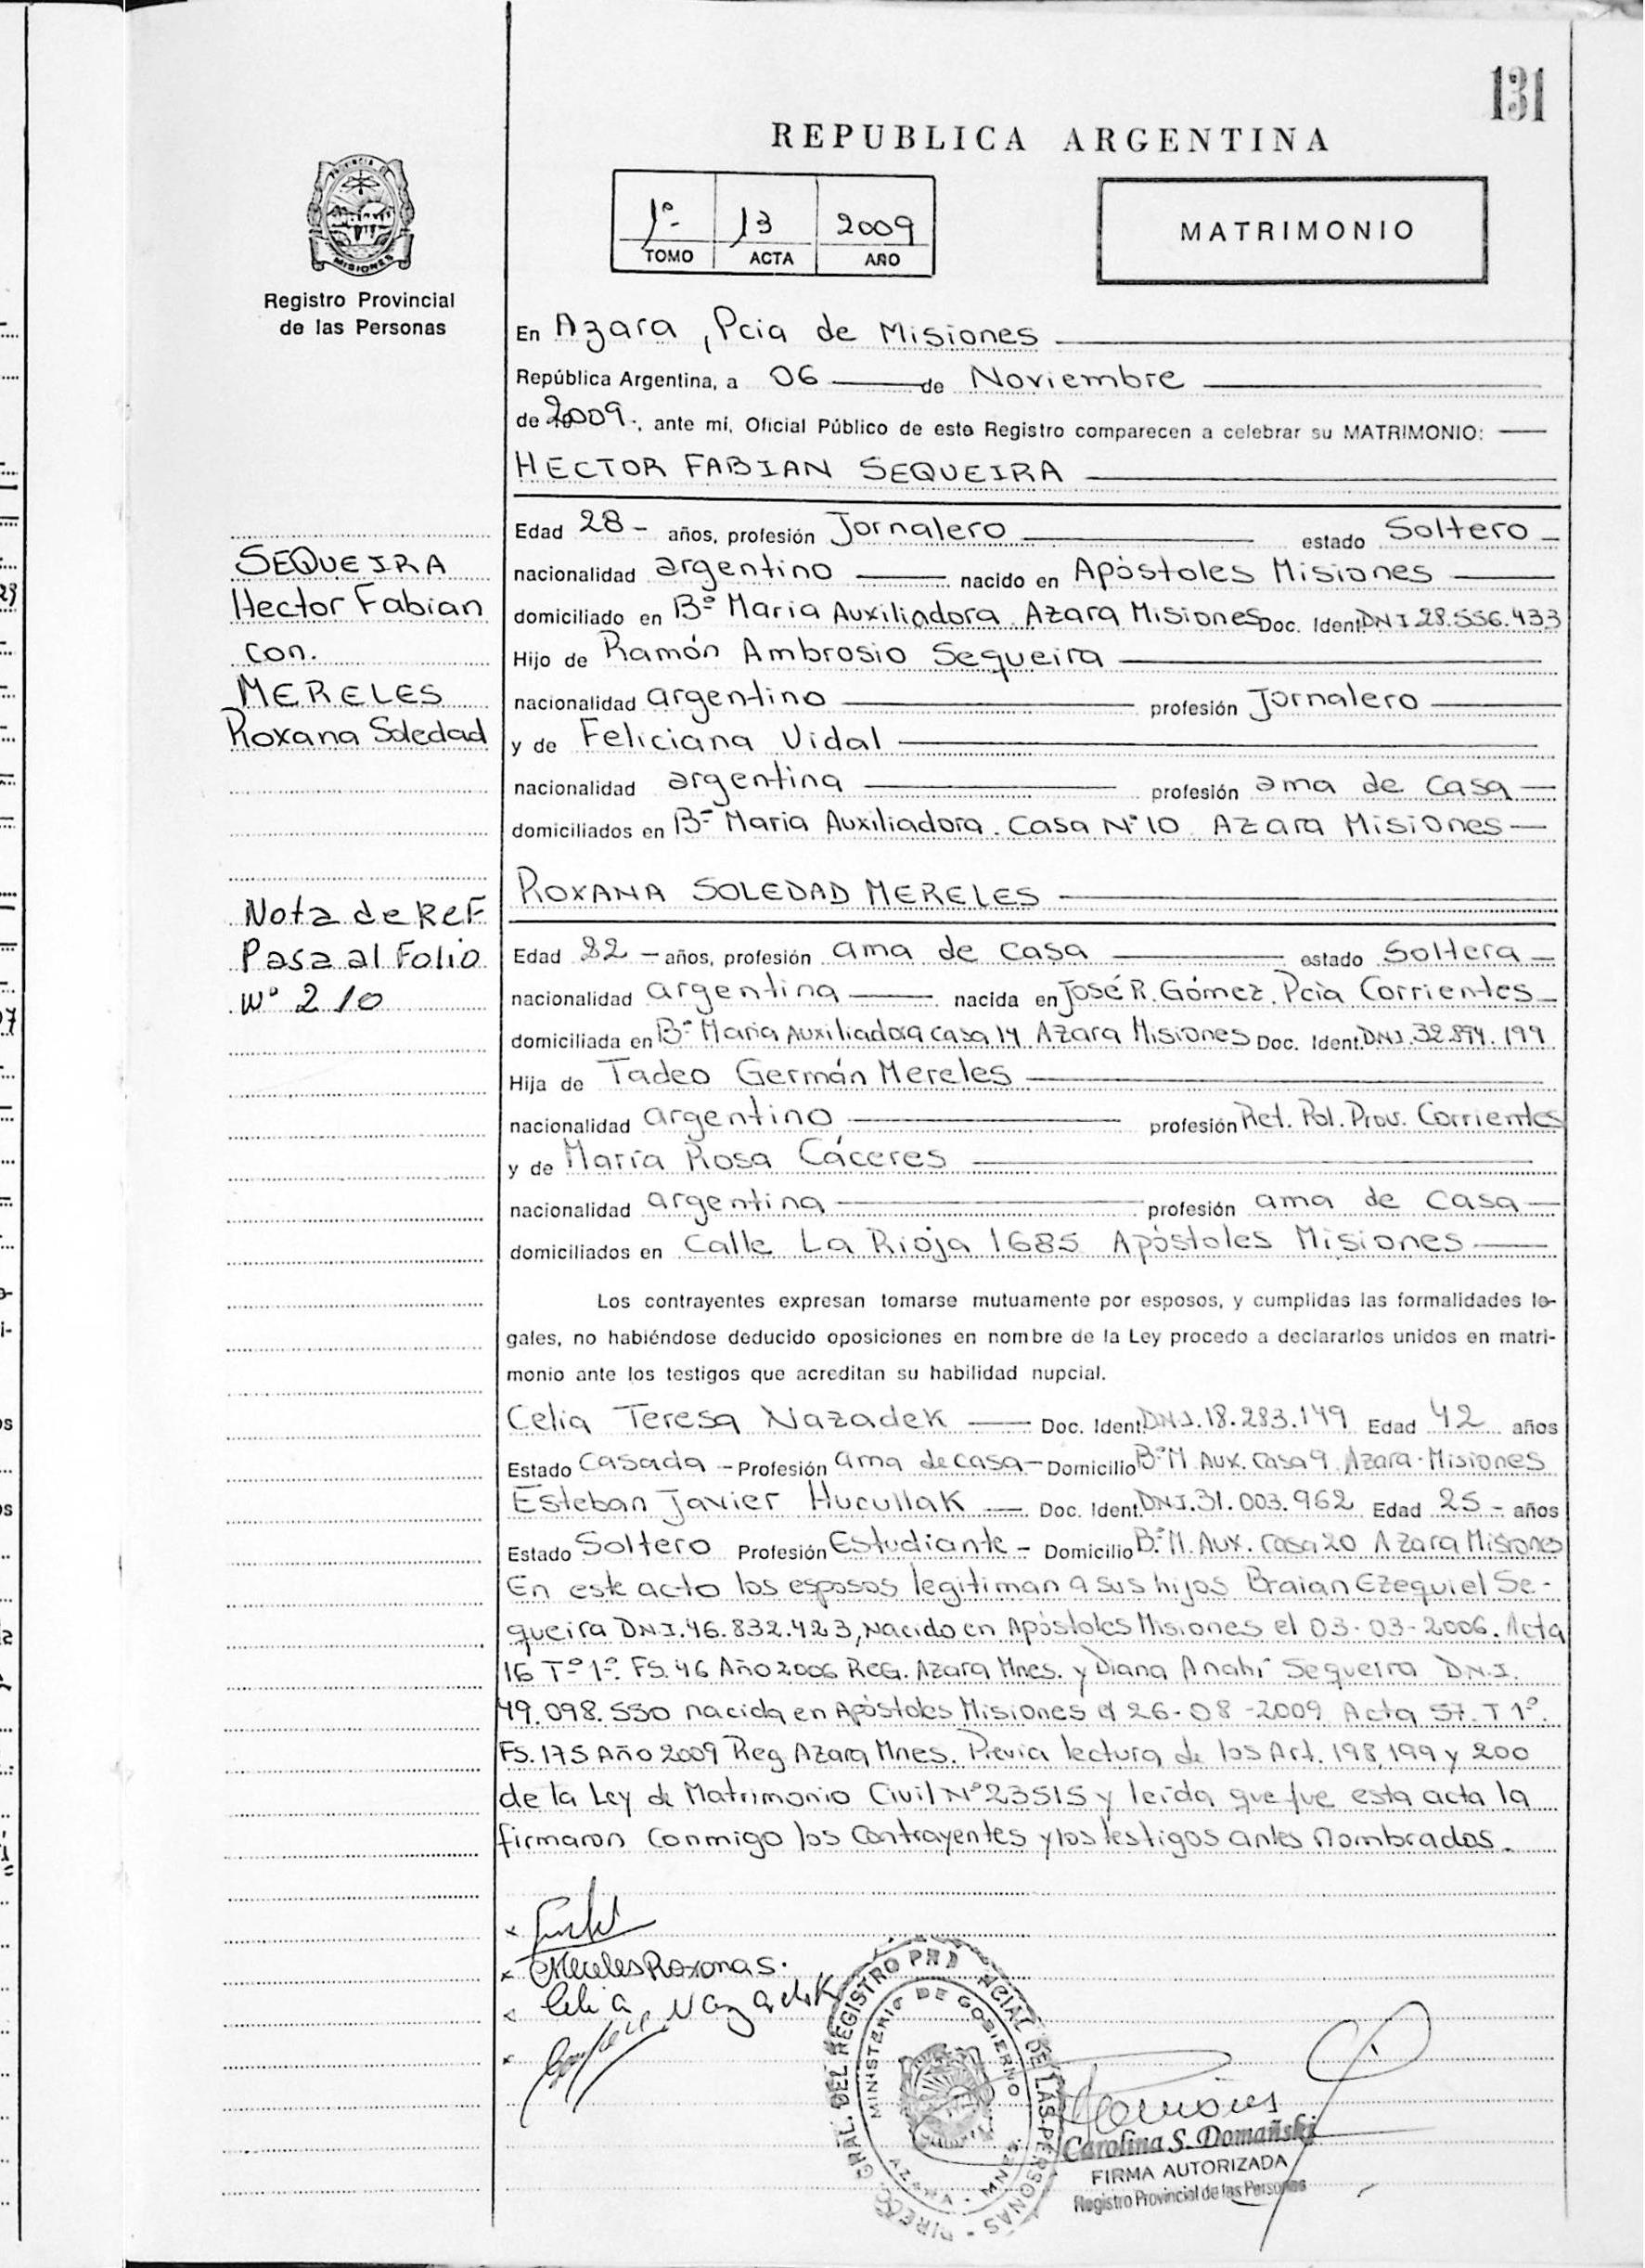 131
REPUBLICA ARGENTINA
1º- 13 2009
TOMO ACTA AÑO
MATRIMONIO
PROVINCIA
MISIONES
Registro Provincial
de las Personas
En Azara, Pcia de Misiones
República Argentina, a 06 de Noviembre
de 2009-, ante mí, Oficial Público de este Registro comparecen a celebrar su MATRIMONIO:
HECTOR FABIAN SEQUEIRA
Edad 28- años, profesión Jornalero estado Soltero
nacionalidad argentino nacido en Apóstoles Misiones
domiciliado en Bº Maria Auxiliadora. Azara Misiones Doc. Ident. DNI 28.556.433
Hijo de Ramón Ambrosio Sequeira
nacionalidad argentino profesión Jornalero
y de Feliciana Vidal
nacionalidad argentina profesión ama de casa
domiciliados en Bº Maria Auxiliadora. Casa Nº10 Azara Misiones
SEQUEIRA
Hector Fabian
con.
MERELES
Roxana Soledad
ROXANA SOLEDAD MERELES
Edad 22 años, profesión ama de casa estado Soltera
nacionalidad argentina nacida en José R. Gómez. Pcia Corrientes
domiciliada en Bº Maria Auxiliadora casa 14 Azara Misiones Doc. Ident. DNI. 32.894.199
Hija de Tadeo Germán Mereles
nacionalidad argentino profesión Ret. Pol. Prov. Corrientes
y de María Rosa Cáceres
nacionalidad argentina profesión ama de casa
domiciliados en Calle La Rioja 1685 Apóstoles Misiones
Nota de Ref
Pasa al Folio
Nº 210
Los contrayentes expresan tomarse mutuamente por esposos, y cumplidas las formalidades le-
gales, no habiéndose deducido oposiciones en nombre de la Ley procedo a declararlos unidos en matri-
monio ante los testigos que acreditan su habilidad nupcial.
Celia Teresa Nazadek Doc. Ident. DNI. 18.283.149 Edad 42 años
Estado Casada - Profesión ama de casa - Domicilio Bº M Aux. Casa 9 Azara - Misiones
Esteban Javier Hucullak Doc. Ident. DNI. 31.003.962 Edad 25 - años
Estado Soltero Profesión Estudiante - Domicilio Bº M. Aux. Casa 20 Azara Misiones
En este acto los esposos legitiman a sus hijos Braian Ezequiel Se-
queira DNI. 46.832.423, Nacido en Apóstoles Misiones el 03-03-2006. Acta
16 Tº 1º. FS. 46 Año 2006 REG. Azara Mnes. y Diana Anahí Sequeira D.N.I.
49.098.550 nacida en Apóstoles Misiones el 26-08-2009 Acta 57. T 1º.
FS. 175 Año 2009 Reg. Azara Mnes. Previa lectura de los Art. 198, 199 y 200
de la Ley de Matrimonio Civil Nº 23515 y leída que fue esta acta la
firmaron conmigo los contrayentes y los testigos antes nombrados.
Mereles Roxana S.
Celia Nazadek
DIREC. GRAL. DEL REGISTRO PROVINCIAL DE LAS PERSONAS
MINISTERIO DE GOBIERNO
AZARA - MNES.
Carolina S. Domański
FIRMA AUTORIZADA
Registro Provincial de las Personas